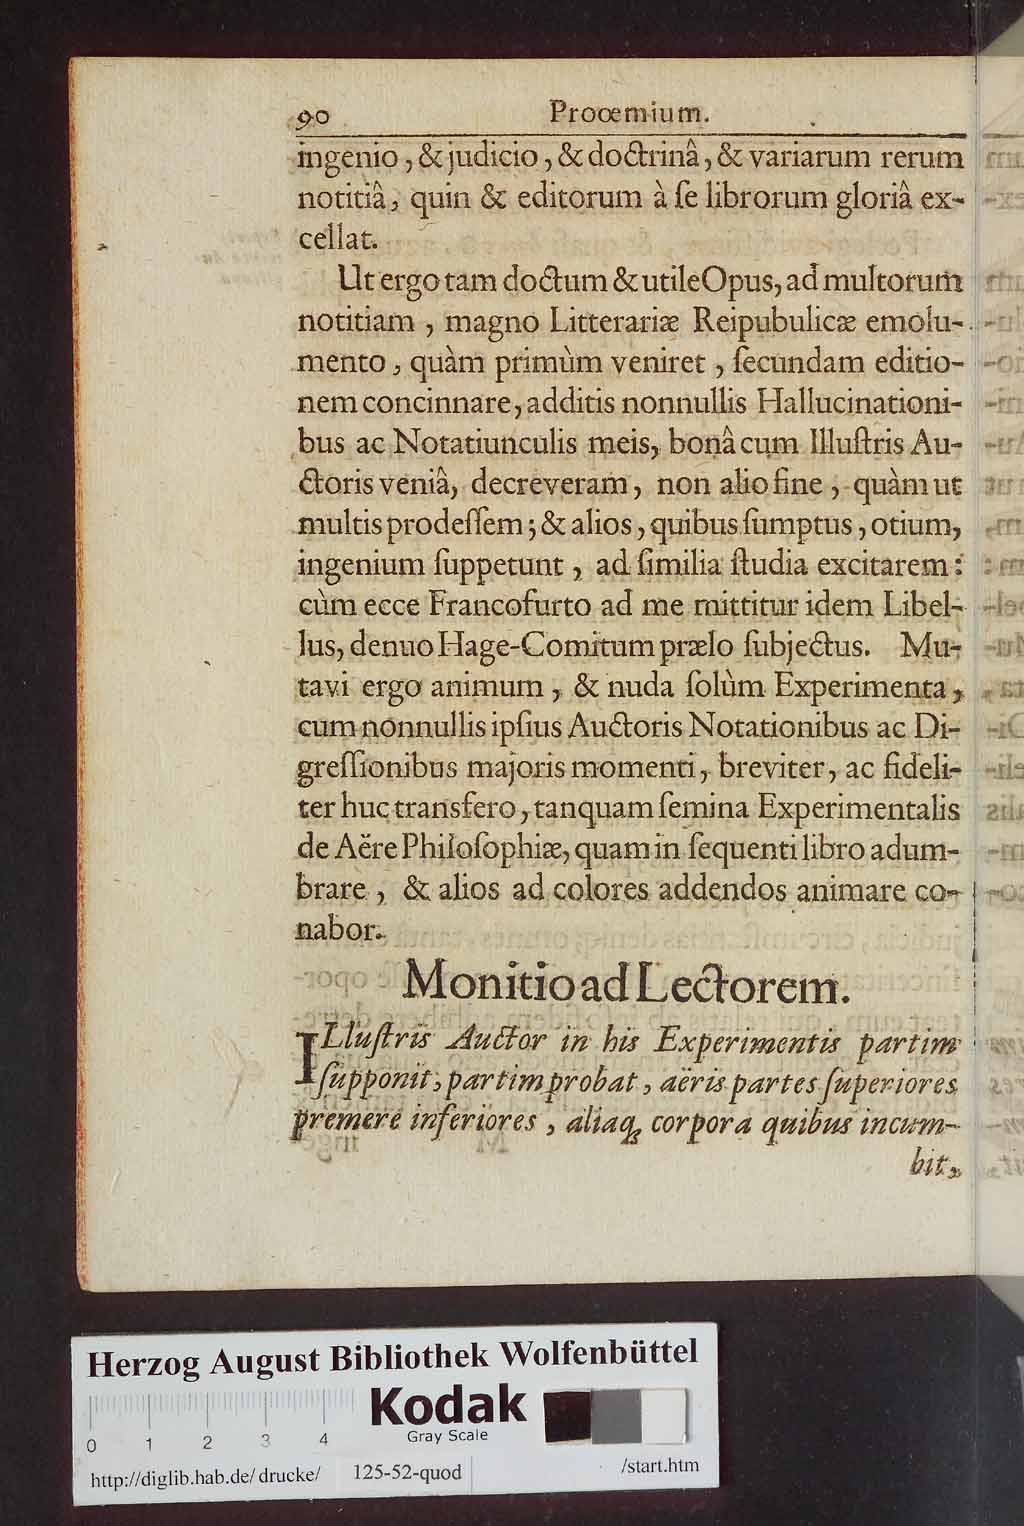 90 Proœmium.
ingenio, & judicio, & doctrinâ, & variarum rerum
notitiâ, quin & editorum à ſe librorum gloriâ ex-
cellat.
Ut ergo tam doctum & utile Opus, ad multorum
notitiam, magno Litterariæ Reipubulicæ emolu-
mento, quàm primùm veniret, ſecundam editio-
nem concinnare, additis nonnullis Hallucinationi-
bus ac Notatiunculis meis, bonâ cum Illuſtris Au-
ctoris veniâ, decreveram, non alio fine, quàm ut
multis prodeſſem; & alios, quibus ſumptus, otium,
ingenium ſuppetunt, ad ſimilia ſtudia excitarem:
cùm ecce Francofurto ad me mittitur idem Libel-
lus, denuo Hage-Comitum prælo ſubjectus. Mu-
tavi ergo animum, & nuda ſolùm Experimenta,
cum nonnullis ipſius Auctoris Notationibus ac Di-
greſſionibus majoris momenti, breviter, ac fideli-
ter huc transfero, tanquam ſemina Experimentalis
de Aëre Philoſophiæ, quam in ſequenti libro adum-
brare, & alios ad colores addendos animare co-
nabor.
Monitio ad Lectorem.
ILluſtris Auctor in his Experimentis partim
ſupponit, partim probat, aëris partes ſuperiores
premere inferiores, aliaq; corpora quibus incum-
bit,
Herzog August Bibliothek Wolfenbüttel
Kodak
Gray Scale
0 1 2 3 4
http://diglib.hab.de/drucke/ 125-52-quod /start.htm